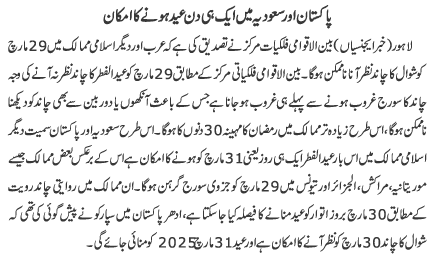 پاکستان اور سعودیہ میں ایک ہی دن عید ہونے کا امکان
لاہور (خبر ایجنسیاں) بین الاقوامی فلکیات مرکز نے تصدیق کی ہے کہ عرب اور دیگر اسلامی ممالک میں 29 مارچ
کو شوال کا چاند نظر آنا ناممکن ہوگا۔ بین الاقوامی فلکیاتی مرکز کے مطابق 29 مارچ کو عید الفطر کا چاند نظر نہ آنے کی وجہ
چاند کا سورج غروب ہونے سے پہلے ہی غروب ہو جانا ہے جس کے باعث آنکھوں یا دوربین سے بھی چاند کو دیکھنا
ناممکن ہوگا، اس طرح زیادہ تر ممالک میں رمضان کا مہینہ 30 دنوں کا ہوگا۔ اس طرح سعودیہ اور پاکستان سمیت دیگر
اسلامی ممالک میں اس بار عید الفطر ایک ہی روز یعنی 31 مارچ کو ہونے کا امکان ہے اس کے برعکس بعض ممالک جیسے
موریتانیہ، مراکش، الجزائر اور تیونس میں 29 مارچ کو جزوی سورج گرہن ہوگا۔ ان ممالک میں روایتی چاند رویت
کے مطابق 30 مارچ بروز اتوار کو عید منانے کا فیصلہ کیا جا سکتا ہے، ادھر پاکستان میں سپارکو نے پیش گوئی کی تھی کہ
شوال کا چاند 30 مارچ کو نظر آنے کا امکان ہے اور عید 31 مارچ 2025 کو منائی جائے گی۔